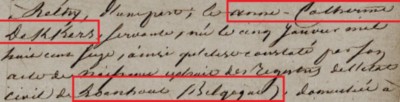 Rethy, d'une part; et Anne-Catherine
Dekkers, servante, née le cinq janvier mil
huit cent juge, ainsi qu'il est constaté par son
acte de naissance extrait des Registres de l'état
civil de (Belgique), domiciliée à